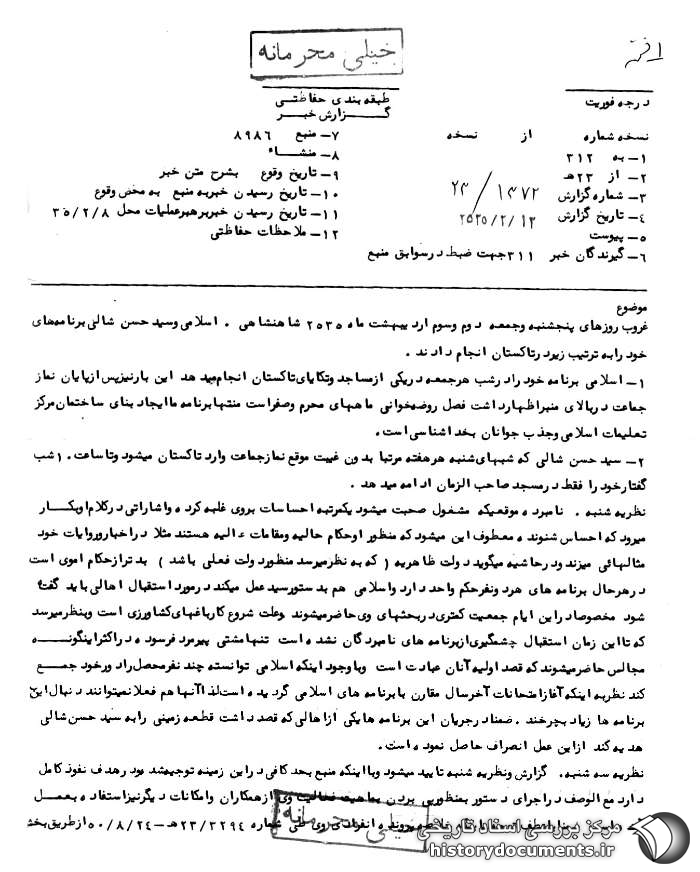 خیلی محرمانه
درجه فوریت
طبقه بندی حفاظتی
گزارش خبر
نسخه شماره از نسخه
۱- به ۳۱۲
۲- از ۲۳هـ
۳- شماره گزارش ۱۴۷۲/۲۳
۴- تاریخ گزارش ۲۵۳۵/۲/۱۳
۵- پیوست
۶- گیرندگان خبر ۳۱۱ جهت ضبط درسوابق منبع
۷- منبع ۸۹۸۶
۸- منشاء
۹- تاریخ وقوع بشرح متن خبر
۱۰- تاریخ رسیدن خبربه منبع به محض وقوع
۱۱- تاریخ رسیدن خبربرهبرعملیات محل ۳۵/۲/۸
۱۲- ملاحظات حفاظتی
موضوع
غروب روزهای پنجشنبه وجمعه دوم وسوم اردیبهشت ماه ۲۵۳۵ شاهنشاهی . اسلامی وسید حسن شالی برنامه‌های
خود رابه ترتیب زیردرتاکستان انجام دادند .
۱- اسلامی برنامه خود رادرشب هرجمعه دریکی ازمساجد وتکایای تاکستان انجام میدهد این بارنیزپس ازپایان نماز
جماعت دربالای منبراظهارداشت فصل روضه‌خوانی ماههای محرم وصفراست منتها برنامه ما ایجاد بنای ساختمان مرکز
تعلیمات اسلامی وجذب جوانان بخداشناسی است .
۲- سید حسن شالی که شبهای شنبه هرهفته مرتبا بدون غیبت موقع نمازجماعت وارد تاکستان میشود وتا ساعت ۱۰ شب
گفتارخود را فقط درمسجد صاحب الزمان ادامه میدهد .
نظریه شنبه . نامبرده موقعیکه مشغول صحبت میشود یکمرتبه احساسات بروی غلبه کرده واشاراتی درکلام اوبکار
میرود که احساس شنونده معطوف این میشود که منظور اوحکام حالیه ومقامات عالیه هستند مثلا دراخباروروایات خود
مثالهائی میزند ودرحاشیه میگوید دولت ظاهریه ( که به نظرمیرسد منظور دولت فعلی باشد ) بدترازحکام اموی است
درهرحال برنامه های هردونفرحکم واحد دارد واسلامی هم بدستورسید عمل میکند درمورد استقبال اهالی باید گفته
شود مخصوصا دراین ایام جمعیت کمتری دربحثهای وی حاضرمیشوند وعلت شروع کارباغهای کشاورزی است وبنظرمیرسد
که تا این زمان استقبال چشمگیری ازبرنامه های نامبردگان نشده است تنها مشتی پیرمرد فرسوده دراکثراینگونه
مجالس حاضرمیشوند که قصد اولیه آنان عبادت است وباوجود اینکه اسلامی توانسته چند نفرمحصل رادورخود جمع
کند نظربه اینکه آغازامتحانات آخرسال مقارن با برنامه های اسلامی گردیده است لذا آنها هم فعلا نمیتوانند دنبال این
برنامه ها زیاد بچرخند . ضمنا درجریان این برنامه ها یکی ازاهالی که قصد داشت قطعه زمینی رابه سید حسن شالی
هدیه کند ازاین عمل انصراف حاصل نموده است .
نظریه سه شنبه . گزارش ونظریه شنبه تایید میشود وبا اینکه منبع بحد کافی دراین زمینه توجیه شده ودرهدف نفوذ کامل
دارد مع الوصف دراجرای دستور بمنظورپی بردن بماهیت فعالیت وی ازهمکاران وامکانات دیگرنیزاستفاده بعمل
پرونده انفرادی وی طی شماره ۲۳/۳۲۹۴هـ-۵۰/۸/۲۴ ازطریق بخش
خیلی محرمانه
مرکز بررسی اسناد تاریخی
historydocuments.ir